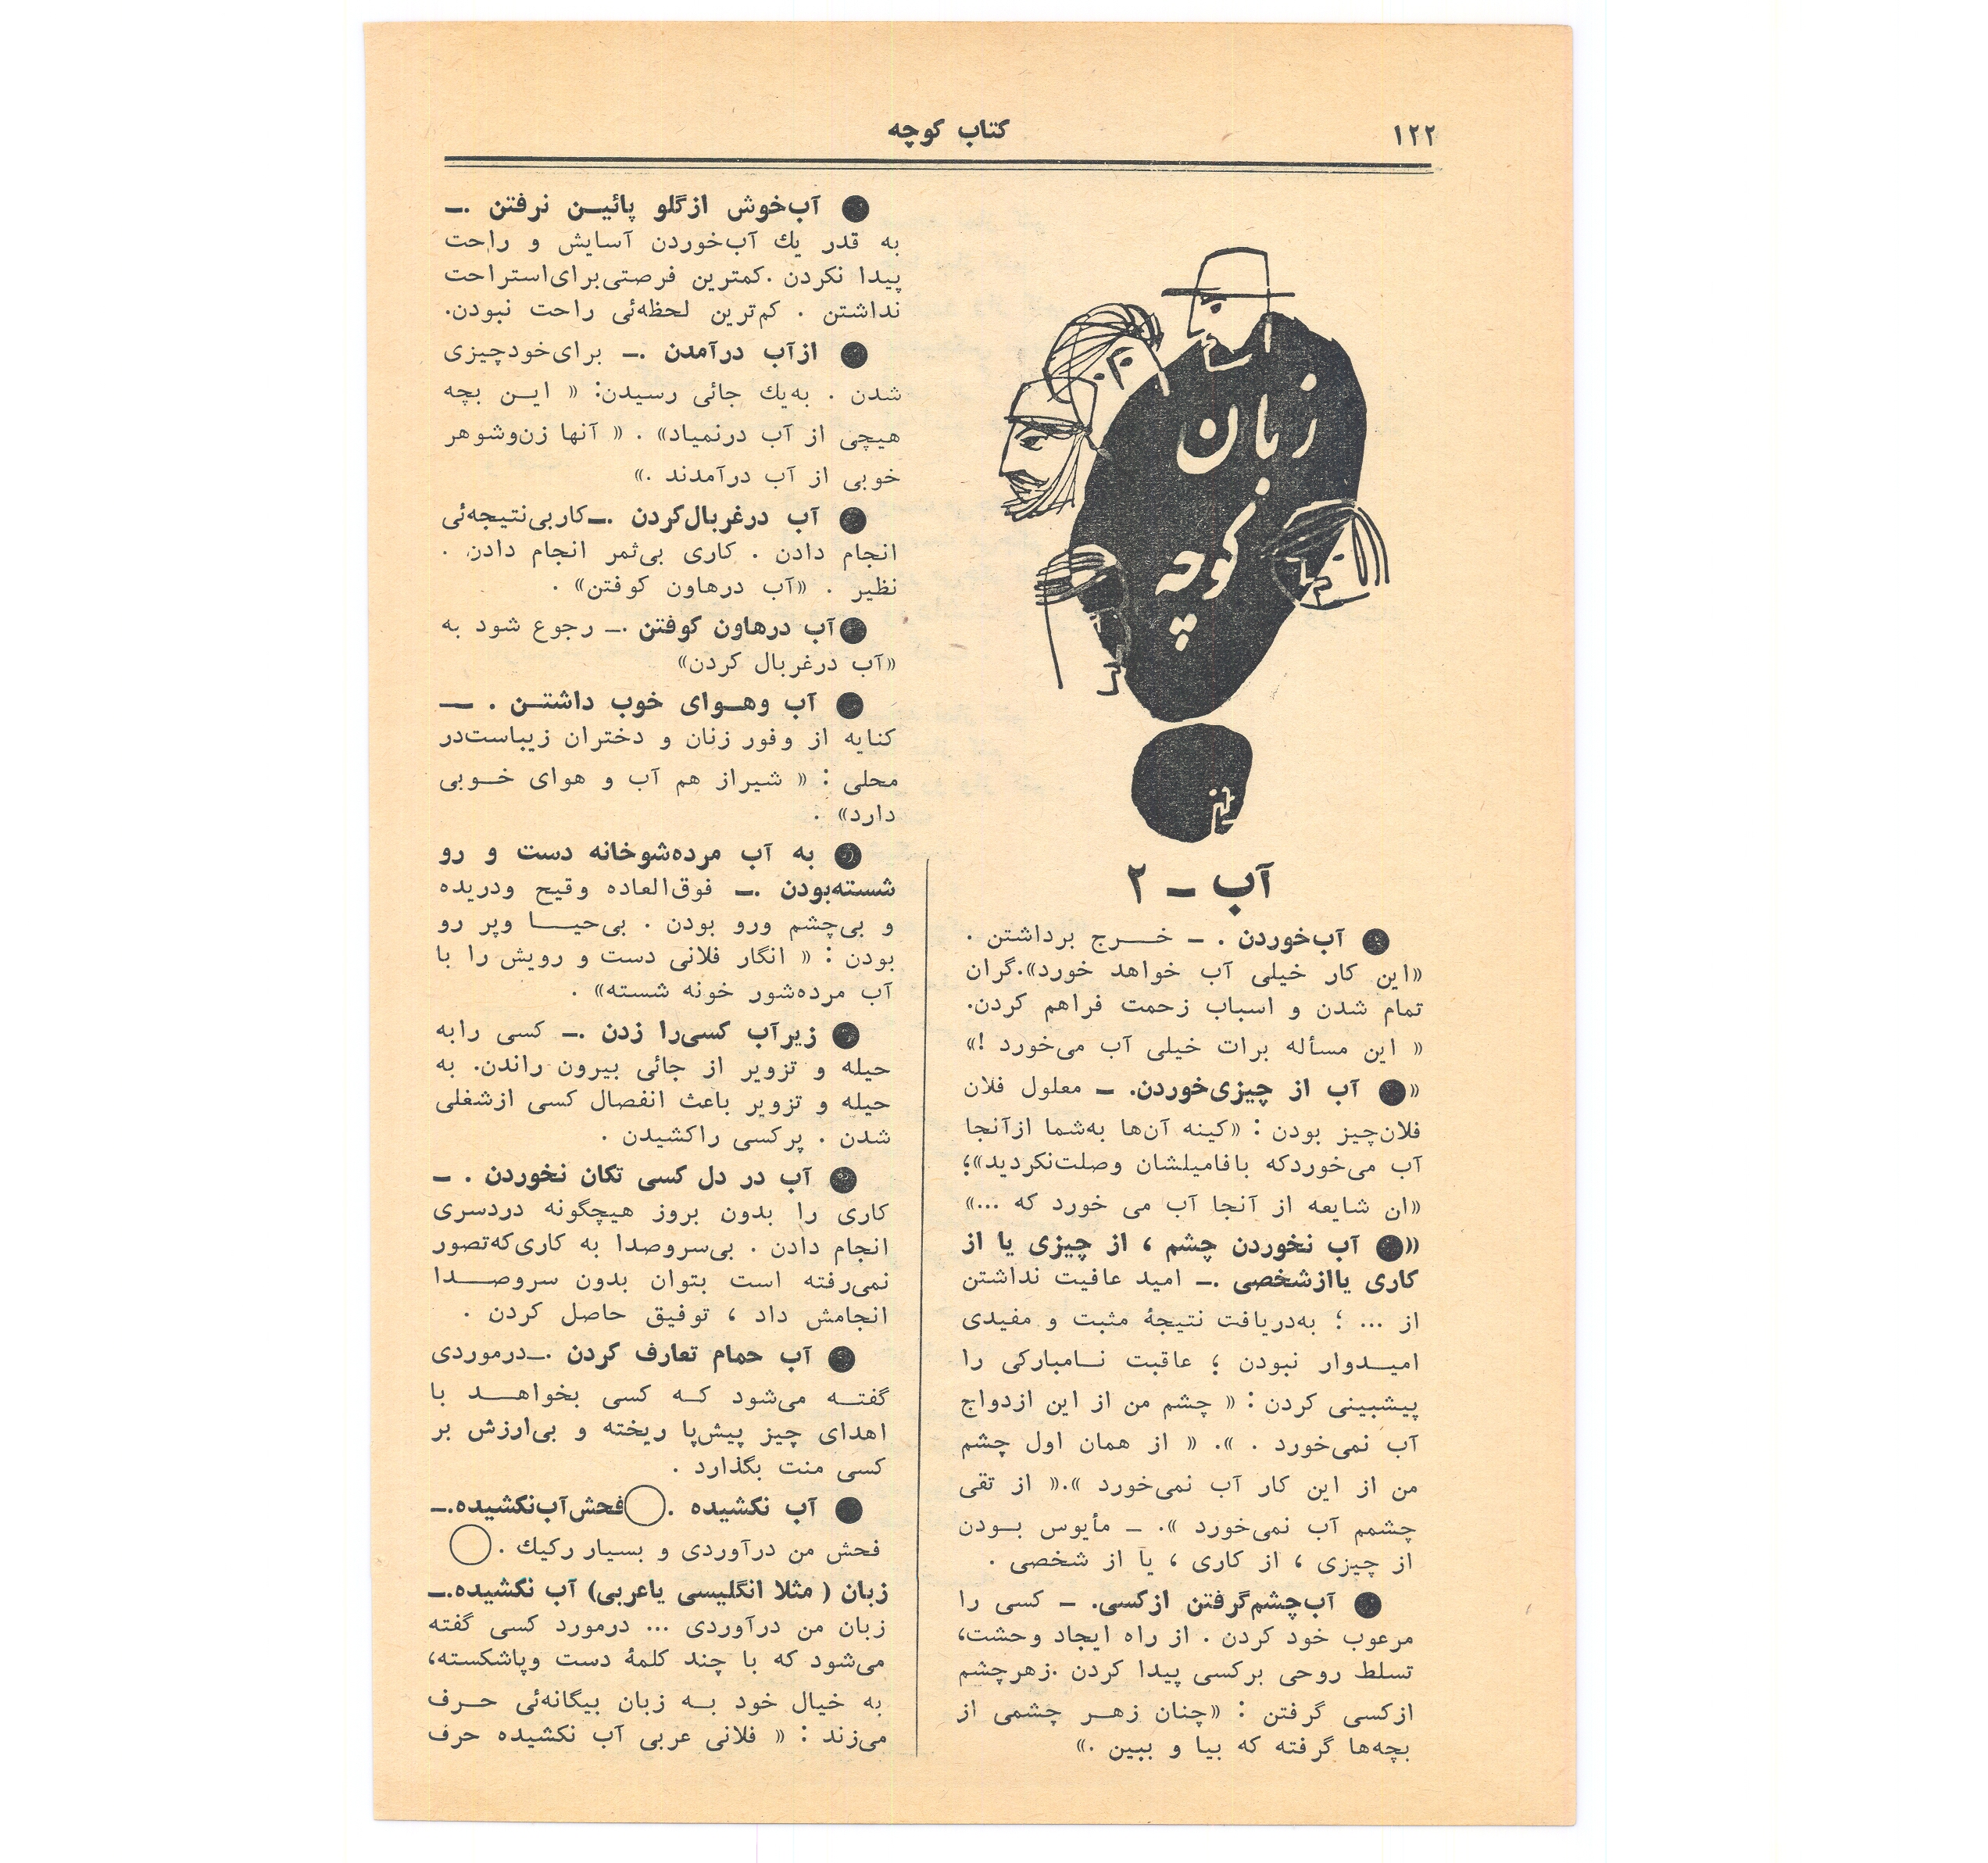 ۱۲۲
کتاب کوچه
زبان
کوچه
آب ــ ۲
● آب‌خوردن . ــ خـــرج برداشتن .
«این کار خیلی آب خواهد خورد».گران
تمام شدن و اسباب زحمت فراهم کردن.
« این مسأله برات خیلی آب می‌خورد !»
«● آب از چیزی‌خوردن. ــ معلول فلان
فلان‌چیز بودن : «کینه آن‌ها به‌شما ازآنجا
آب می‌خوردکه بافامیلشان وصلت‌نکردید»؛
«ان شایعه از آنجا آب می خورد که ...»
«● آب نخوردن چشم ، از چیزی یا از
کاری یاازشخصی .ــ امید عافیت نداشتن
از ... ؛ به‌دریافت نتیجهٔ مثبت و مفیدی
امیـدوار نبودن ؛ عاقبت نـامبارکی را
پیشبینی کردن : « چشم من از این ازدواج
آب نمی‌خورد . ». « از همان اول چشم
من از این کار آب نمی‌خورد ».« از تقی
چشمم آب نمی‌خورد ». ــ مأیوس بـودن
از چیزی ، از کاری ، یا از شخصی .
● آب‌چشم‌گرفتن ازکسی. ــ کسی را
مرعوب خود کردن . از راه ایجاد وحشت،
تسلط روحی برکسی پیدا کردن .زهرچشم
ازکسی گرفتن : «چنان زهـر چشمی از
بچه‌ها گرفته که بیا و ببین .»
● آب‌خوش ازگلو پائیـن نرفتن .ــ
به قدر یك آب‌خوردن آسایش و راحت
پیدا نکردن .کمترین فرصتی‌برای‌استراحت
نداشتن . کم‌ترین لحظه‌ئی راحت نبودن.
● ازآب درآمدن .ــ برای‌خودچیزی
شدن . به‌یك جائی رسیدن: « ایـن بچه
هیچی از آب درنمیاد» . « آنها زن‌وشوهر
خوبی از آب درآمدند .»
● آب درغربال‌کردن .ــکاربی‌نتیجه‌ئی
انجام دادن . کاری بی‌ثمر انجام دادن .
نظیر . «آب درهاون کوفتن» .
●آب درهاون کوفتن .ــ رجوع شود به
«آب درغربال کردن»
● آب وهـوای خوب داشتـن . ــ
کنایه از وفور زنان و دختران زیباست‌در
محلی : « شیراز هم آب و هوای خـوبی
دارد» .
● به آب مرده‌شوخانه دست و رو
شسته‌بودن .ــ فوق‌العاده وقیح ودریده
و بی‌چشم ورو بودن . بی‌حیـا وپر رو
بودن : « انگار فلانی دست و رویش را با
آب مرده‌شور خونه شسته» .
● زیرآب کسی‌را زدن .ــ کسی رابه
حیله و تزویر از جائی بیرون راندن. به
حیله و تزویر باعث انفصال کسی ازشغلی
شدن . پرکسی راکشیدن .
● آب در دل کسی تکان نخوردن . ــ
کاری را بدون بروز هیچگونه دردسری
انجام دادن . بی‌سروصدا به کاری‌که‌تصور
نمی‌رفته است بتوان بدون سروصـدا
انجامش داد ، توفیق حاصل کردن .
● آب حمام تعارف کردن .ــدرموردی
گفتـه می‌شود کـه کسی بخواهـد با
اهدای چیز پیش‌پا ریخته و بی‌ارزش بر
کسی منت بگذارد .
● آب نکشیده .◯فحش‌آب‌نکشیده.ــ
فحش من درآوردی و بسیار رکیك .◯
زبان ( مثلا انگلیسی یاعربی) آب نکشیده.ــ
زبان من درآوردی ... درمورد کسی گفته
می‌شود که با چند کلمهٔ دست وپاشکسته،
به خیال خود بـه زبان بیگانه‌ئی حـرف
می‌زند : « فلانی عربی آب نکشیده حرف